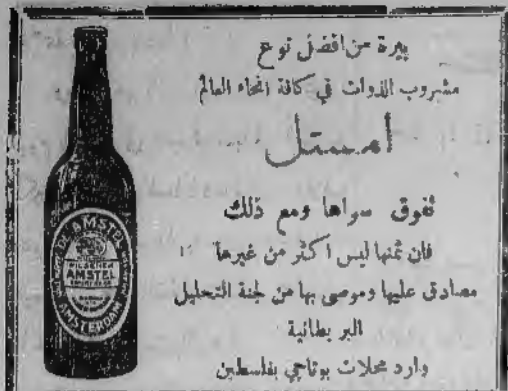 بيرة من افضل نوع
مشروب الذوات في كافة انحاء العالم
امستل
تفوق سواها ومع ذلك
فان ثمنها ليس اكثر من غيرها
مصادق عليها وموصى بها من لجنة التحليل
البريطانية
وارد محلات بوتاجي بفلسطين
AMSTEL
PILSENER
AMSTEL
AMSTERDAM